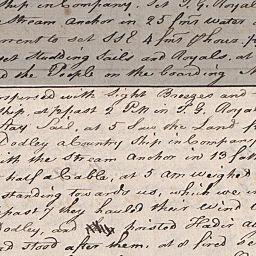 Ship in Company. Set T. G. Royals
Stream anchor in 25 fms water
Current to set SSE 4 fms p hour
set Studding Sails and Royals, at
d the People on the boarding
with light Breezes and
ship, at past 2 PM in T. G. Royals
Stay Sail, at 5 Saw the Land f
Dodley a Country Ship in Company
ith the Stream Anchor in 13 fath
half a Cable, at 5 am weighed
standing towards us, which we
past 7 they hauled their Wind
odley, and Hadir
d stood after them, at 8 fired